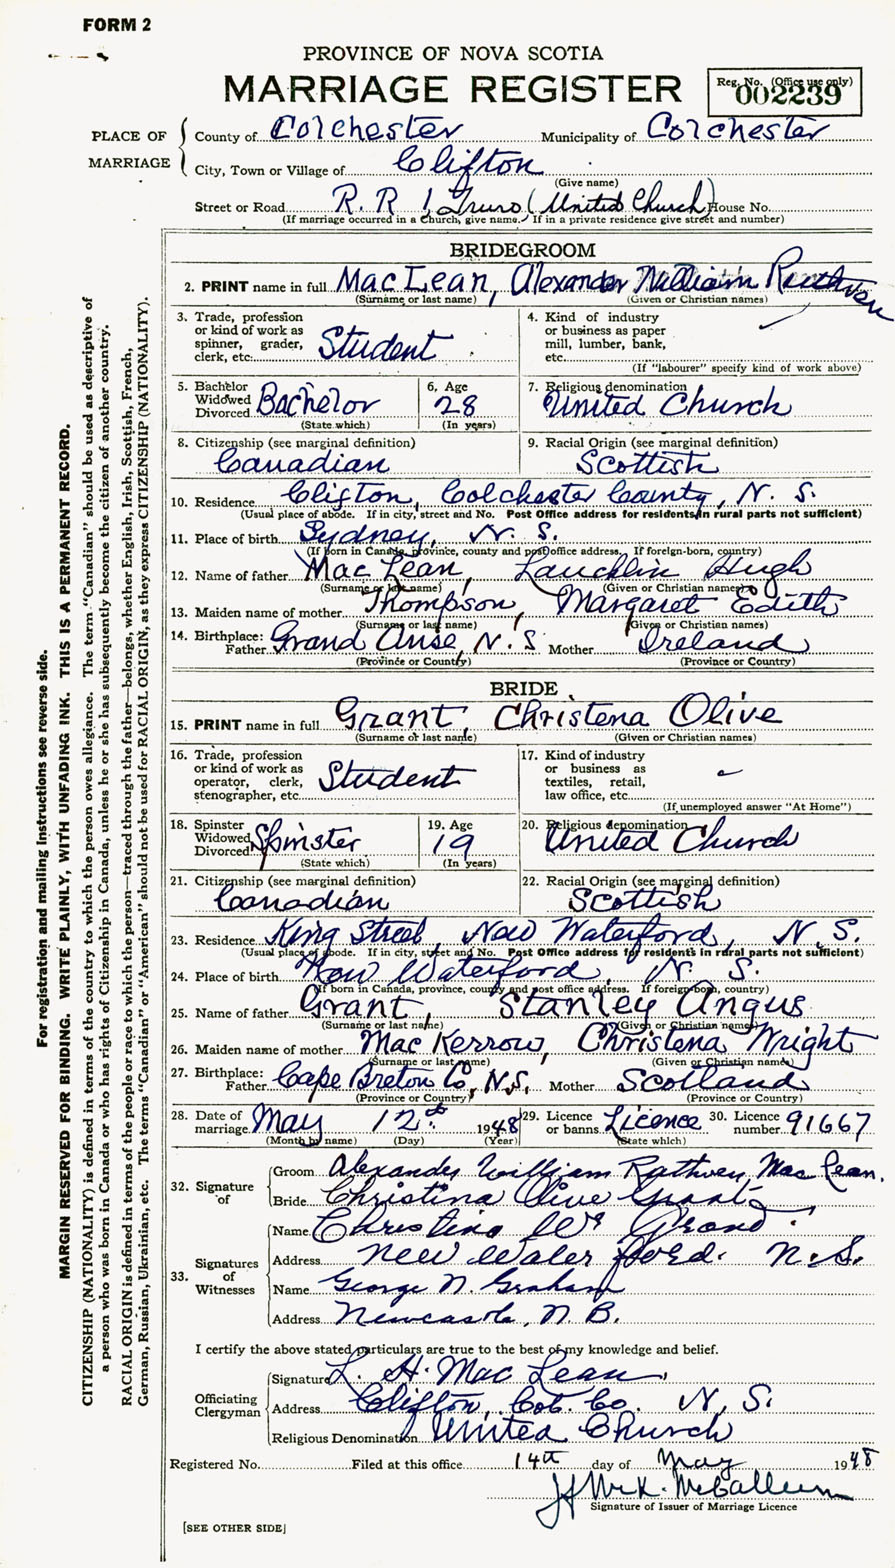 FORM 2
PROVINCE OF NOVA SCOTIA
MARRIAGE REGISTER
Reg. No. (Office use only)
002239
PLACE OF MARRIAGE
County of Colchester Municipality of Colchester
City, Town or Village of Clifton
(Give name)
Street or Road R. R 1, Truro (United Church) House No.
(If marriage occurred in a Church, give name. If in a private residence give street and number)
BRIDEGROOM
2. PRINT name in full MacLean, Alexander William Ruthven
(Surname or last name) (Given or Christian names)
3. Trade, profession
or kind of work as
spinner, grader,
clerk, etc. Student
4. Kind of industry
or business as paper
mill, lumber, bank,
etc.
(If "labourer" specify kind of work above)
5. Bachelor
Widowed
Divorced Bachelor
(State which)
6. Age
28
(In years)
7. Religious denomination
United Church
8. Citizenship (see marginal definition)
Canadian
9. Racial Origin (see marginal definition)
Scottish
10. Residence Clifton, Colchester County, N. S.
(Usual place of abode. If in city, street and No. Post Office address for residents in rural parts not sufficient)
11. Place of birth Sydney, N. S.
(If born in Canada, province, county and post office address. If foreign-born, country)
12. Name of father MacLean, Lauchlin Hugh
(Surname or last name) (Given or Christian names)
13. Maiden name of mother Thompson, Margaret Edith
(Surname or last name) (Given or Christian names)
14. Birthplace:
Father Grand Anse, N. S Mother Ireland
(Province or Country) (Province or Country)
BRIDE
15. PRINT name in full Grant, Christena Olive
(Surname or last name) (Given or Christian names)
16. Trade, profession
or kind of work as
operator, clerk,
stenographer, etc. Student
17. Kind of industry
or business as
textiles, retail,
law office, etc.
(If unemployed answer "At Home")
18. Spinster
Widowed
Divorced Spinster
(State which)
19. Age
19
(In years)
20. Religious denomination
United Church
21. Citizenship (see marginal definition)
Canadian
22. Racial Origin (see marginal definition)
Scottish
23. Residence King Street, New Waterford, N. S.
(Usual place of abode. If in city, street and No. Post Office address for residents in rural parts not sufficient)
24. Place of birth New Waterford, N. S.
(If born in Canada, province, county and post office address. If foreign-born, country)
25. Name of father Grant, Stanley Angus
(Surname or last name) (Given or Christian name)
26. Maiden name of mother MacKerrow, Christena Wright
(Surname or last name) (Given or Christian names)
27. Birthplace:
Father Cape Breton Co, N.S. Mother Scotland
(Province or Country) (Province or Country)
28. Date of
marriage May 12th 1948
(Month by name) (Day) (Year)
29. Licence
or banns Licence
(State which)
30. Licence
number 91667
32. Signature of
Groom Alexander William Ruthven MacLean.
Bride Christina Olive Grant
33. Signatures of Witnesses
Name Christina Wr Grand.
Address New Water ford. N. S.
Name George N. Graham
Address Newcastle, N. B.
I certify the above stated particulars are true to the best of my knowledge and belief.
Officiating Clergyman
Signature L. H. MacLean
Address Clifton, Col. Co. N. S.
Religious Denomination United Church
Registered No. Filed at this office 14th day of May 1948
J H McK. McCallum
Signature of Issuer of Marriage Licence
[SEE OTHER SIDE]
For registration and mailing instructions see reverse side.
MARGIN RESERVED FOR BINDING. WRITE PLAINLY, WITH UNFADING INK. THIS IS A PERMANENT RECORD.
CITIZENSHIP (NATIONALITY) is defined in terms of the country to which the person owes allegiance. The term "Canadian" should be used as descriptive of
a person who was born in Canada or who has rights of Citizenship in Canada, unless he or she has subsequently become the citizen of another country.
RACIAL ORIGIN is defined in terms of the people or race to which the person—traced through the father—belongs, whether English, Irish, Scottish, French,
German, Russian, Ukrainian, etc. The terms "Canadian" or "American" should not be used for RACIAL ORIGIN, as they express CITIZENSHIP (NATIONALITY).